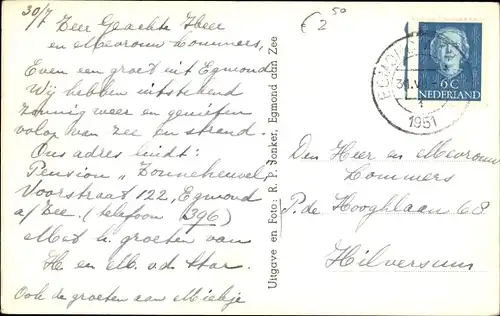 30/7 Zeer Geachte Heer
en Mevrouw Lommers,
Even een groet uit Egmond
Wij hebben uitstekend
zonnig weer en genieten
volop van zee en strand.
Ons adres luidt:
Pension „Zonneheuvel,
Voorstraat 122, Egmond
a/Zee. (telefoon 396)
Met h. groeten van
H. en M. v.d. Star.
Ook de groeten aan Miekje
Uitgave en Foto: R. P. Bonker, Egmond aan Zee
€ 2 50
6 C
NEDERLAND
EGMOND
31.VII
1
1951
Den Heer en Mevrouw
Lommers
P. de Hooghlaan 68
Hilversum